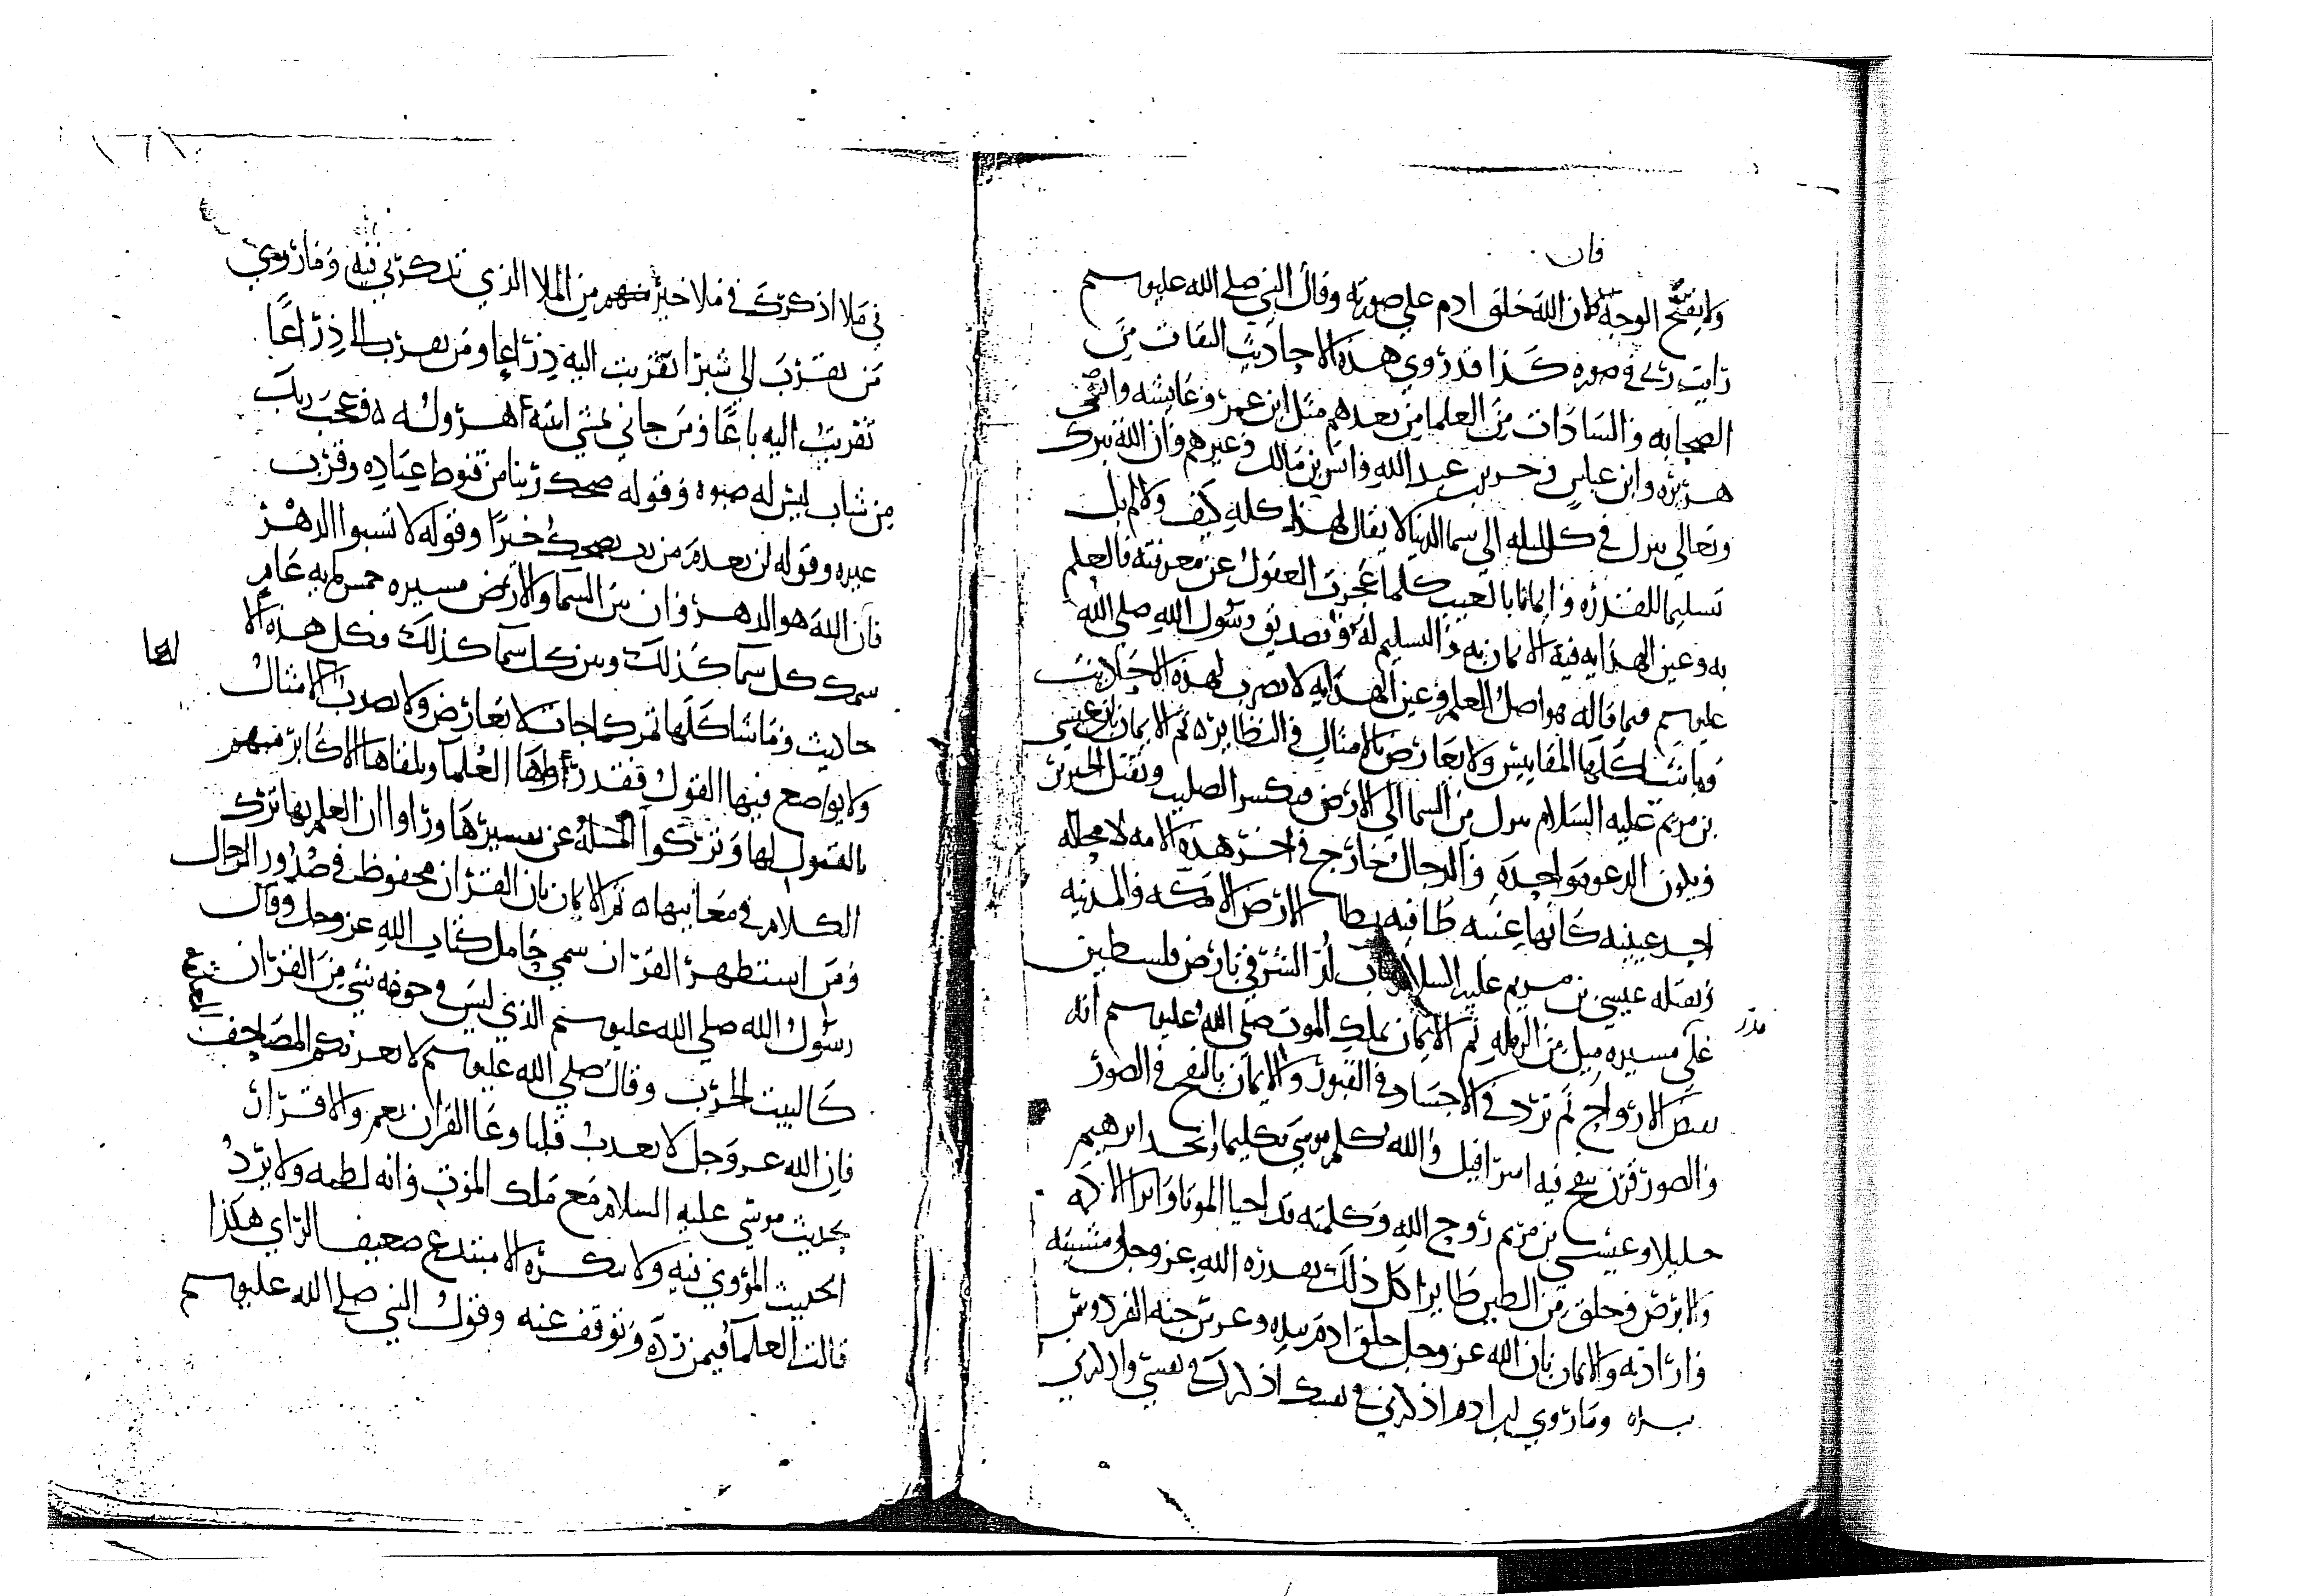 فان
ولا يقبح الوجه فان الله خلق ادم علي صورته وقال النبي صلي الله عليه وسلم
رايت ربي في صوره كذا قد روي هذه الاحاديث الثقات من
الصحابه والسادات من العلما من بعدهم مثل ابن عمر وعايشه وابي
هريره وابن عباس وجرير بن عبد الله وانس بن مالك وغيرهم وان الله تبرك
وتعالي ينزل في كل ليله الي سما الدنيا لا يقال لهذا كله كيف ولا لم بل
تسليما للقدره وايمانا بالغيب كلما عجزت العقول عن معرفته فالعلم
به وعين الهدايه فيه الايمان به والتسليم له وتصديق رسول الله صلي الله
عليه وسلم فيما قاله هو اصل العلم وعين الهدايه لا تضرب لهذه الاحاديث
وما شاكلها المقاييس ولا تعارض بالامثال والنظاير ثم الايمان بان عيسي
بن مريم عليه السلام ينزل من السما الي الارض فيكسر الصليب ويقتل الخنزير
وتكون الدعوه واحده والدجال خارج في اخر هذه الامه لا محاله
احد عينيه كانها عنبه طافيه يطا الارض الا مكه والمدينه
ويقتله عيسي بن مريم عليه السلام بباب لد الشرقي بارض فلسطين
علي مسيره ميل من الرمله ثم الايمان بملك الموت صلي الله عليه وسلم انه
يقبض الارواح ثم ترد في الاجساد في القبور والايمان بالنفخ في الصور
والصور قرن ينفخ فيه اسرافيل والله كلم موسي تكليما واتخذ ابرهيم
خليلا وعيسي بن مريم روح الله وكلمته قد احيا الموتا وابرا الاكمه
والابرص وخلق من الطين طايرا كل ذلك بقدره الله عز وجل ومشيته
وارادته والايمان بان الله عز وجل خلق ادم بيده وغرس جنه الفردوس
بيده وما روي ابن ادم اذكرني في نفسك اذكرك في نفسي واذكرني
في ملا اذكرك في ملا خير منهم من الملا الذي تذكرني فيه وما روي
من تقرب الي شبرا تقربت اليه ذراعا ومن تقرب الي ذراعا
تقربت اليه باعا ومن جاني يمشي اتيته اهروله وعجب ربك
من شاب ليس له صبوه وقوله ضحك ربنا من قنوط عباده وقرب
غيره وقوله لن نعدم من رب يضحك خيرا وقوله لا تسبوا الدهر
فان الله هو الدهر وان بين السما والارض مسيره خمس مايه عام
سمك كل سما كذلك وبين كل سما كذلك وكل هذه الا
حاديث وما شاكلها تمر كما جات لا تعارض ولا تضرب الامثال
لها
ولا يواضع فيها القول فقد رواها العلما وتلقاها الاكابر منهم
بالقبول لها وتركوا المسله عن تفسيرها وراوا ان العلم بها ترك
الكلام في معانيها ثم الايمان بان القران محفوظ في صدور الرجال
ومن استظهر القران سمي حامل كتاب الله عز وجل وقال
رسول الله صلي الله عليه وسلم الذي ليس في جوفه شي من القران
كالبيت الخرب وقال صلي الله عليه وسلم لا تغرنكم المصاحف
فان الله عز وجل لا يعذب قلبا وعا القران نعم والاقرار
بحديث موسي عليه السلام مع ملك الموت وانه لطمه ولا يرد
الحديث المروي فيه ولا ينكره الا مبتدع ضعيف الراي هكذا
قالت العلما فيمن رده وتوقف عنه وقول النبي صلي الله عليه وسلم